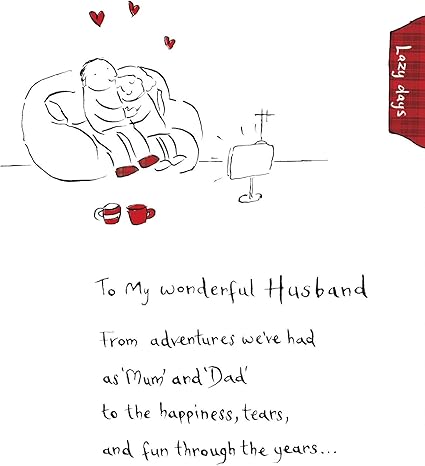 Lazy days
To My wonderful Husband
From adventures we've had
as 'Mum' and 'Dad'
to the happiness, tears,
and fun through the years...